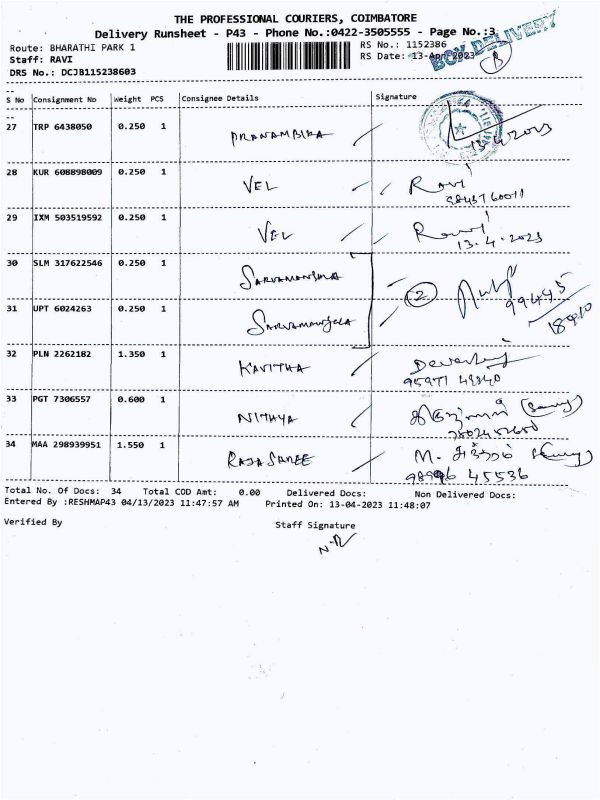 THE PROFESSIONAL COURIERS, COIMBATORE
Delivery Runsheet - P43 - Phone No.:0422-3505555 - Page No.:3
BOX DELIVERY
Route: BHARATHI PARK 1
RS No.: 1152386
Staff: RAVI
RS Date: 13-Apr-2023
DRS No.: DCJB115238603
S No Consignment No Weight PCS Consignee Details Signature
27 TRP 6438050 0.250 1 PRANAMBIKA 13.4.2023
28 KUR 608898009 0.250 1 VEL Ravi
29 IXM 503519592 0.250 1 VEL Ravi
13.4.2023
30 SLM 317622546 0.250 1 SARVAMANGALA
2
99445
18910
31 UPT 6024263 0.250 1 SARVAMANGALA
32 PLN 2262182 1.350 1 KAVITHA
95971 49840
33 PGT 7306557 0.600 1 NITHYA
34 MAA 298939951 1.550 1 RAJA SHREE M.
45536
Total No. Of Docs: 34 Total COD Amt: 0.00 Delivered Docs: Non Delivered Docs:
Entered By :RESHMAP43 04/13/2023 11:47:57 AM Printed On: 13-04-2023 11:48:07
Verified By Staff Signature